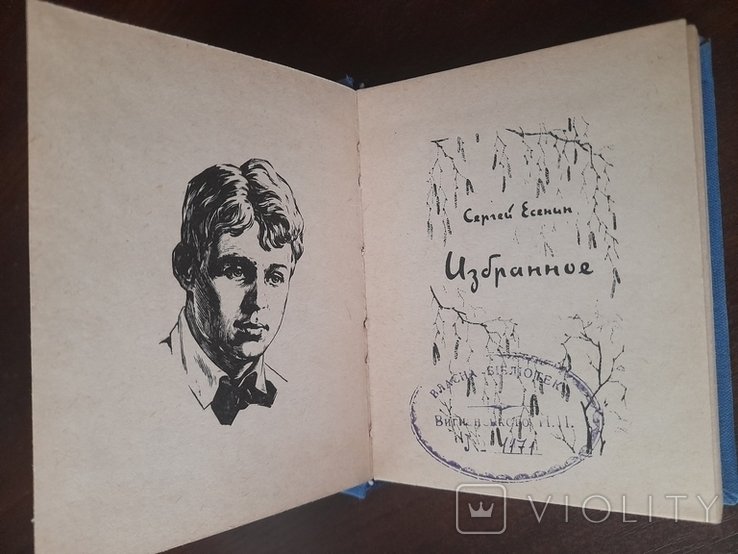 Сергей Есенин
Избранное
ВЛАСНА БІБЛІОТЕКА
П.П.
№ 1171
VIOLITY